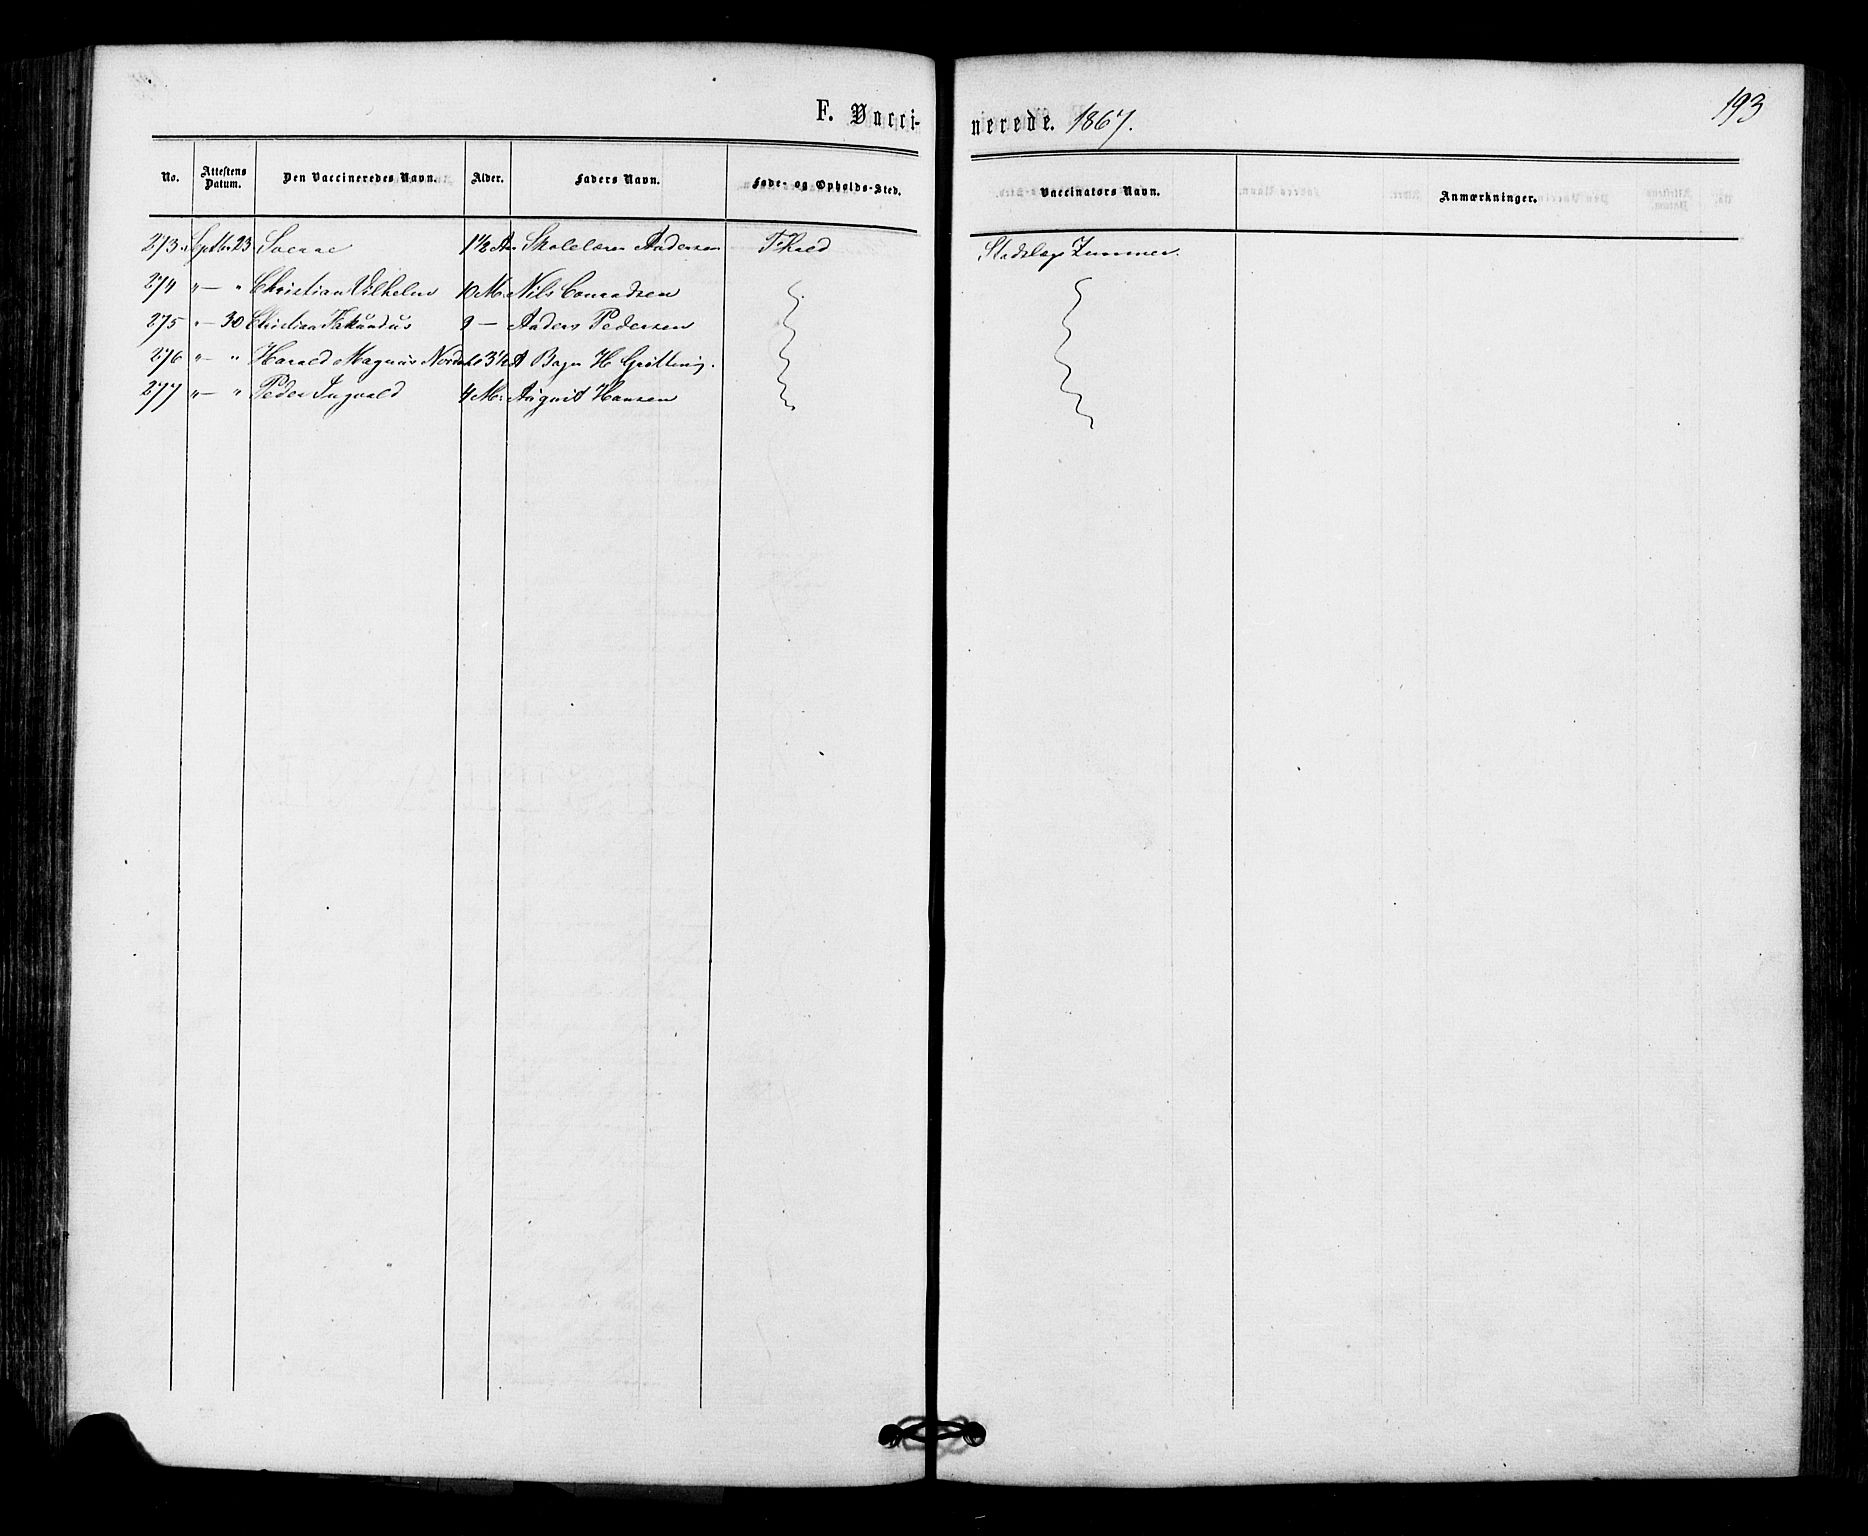 193
F. Vacci- nerede. 1867.
No. Attestens Datum. Den Vaccineredes Navn. Alder. Faders Navn. Føde- og Opholds-Sted. Vaccinators Navn. Anmærkninger.
273. Septbr 23 1½ Aar Skolelærer Andersen Fr.hald Stadslæge Zimmer.
274 " — " Christian Vilhelm 10 M. Nils Conradsen
275 " — 30 Christian 9 — Anders Pedersen
276 " — " Harald Magnus 3½ A H.
277 " — " Peder Ingvald 4 M. August Hansen